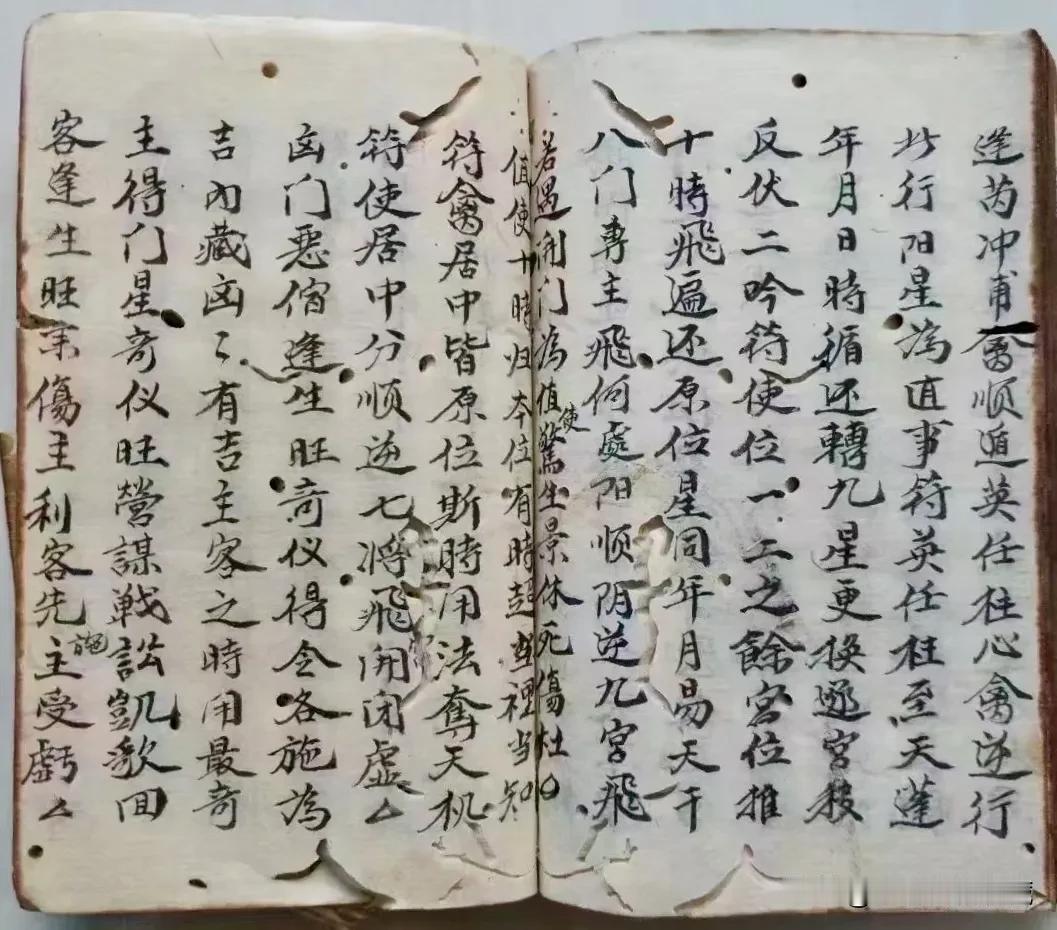 逢芮冲甫禽顺遁英任柱心禽逆行
此行阳星為直事符英任柱至天蓬
年月日時循还轉九星更换逐宫移
反伏二吟符使位一二之餘宫位推
十時飛遍还原位星同年月易天干
八门専主飛何處阳顺阴逆九宫飛
若遇開门為值使驚生景休死傷杜
值使十時归本位有時超 裡当知
符禽居中皆原位斯時用法奪天机
符使居中分顺逆七将飛開闭虚
凶门惡宿逢生旺奇仪得令各施為
吉内藏凶〻有吉主客之時用最奇
主得门星奇仪旺營謀戦訟凱歌回
客逢生旺来傷主利客先施主受虧